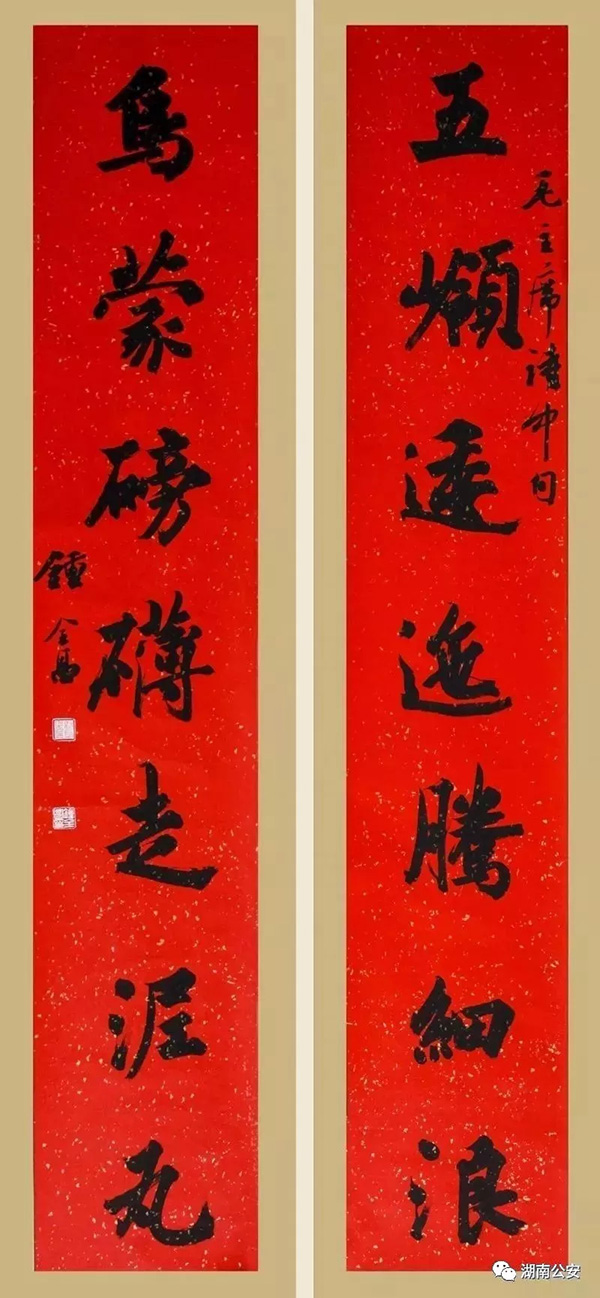 五嶺逶迤騰細浪
毛主席詩中句
烏蒙磅礴走泥丸
鍾金
湖南公安